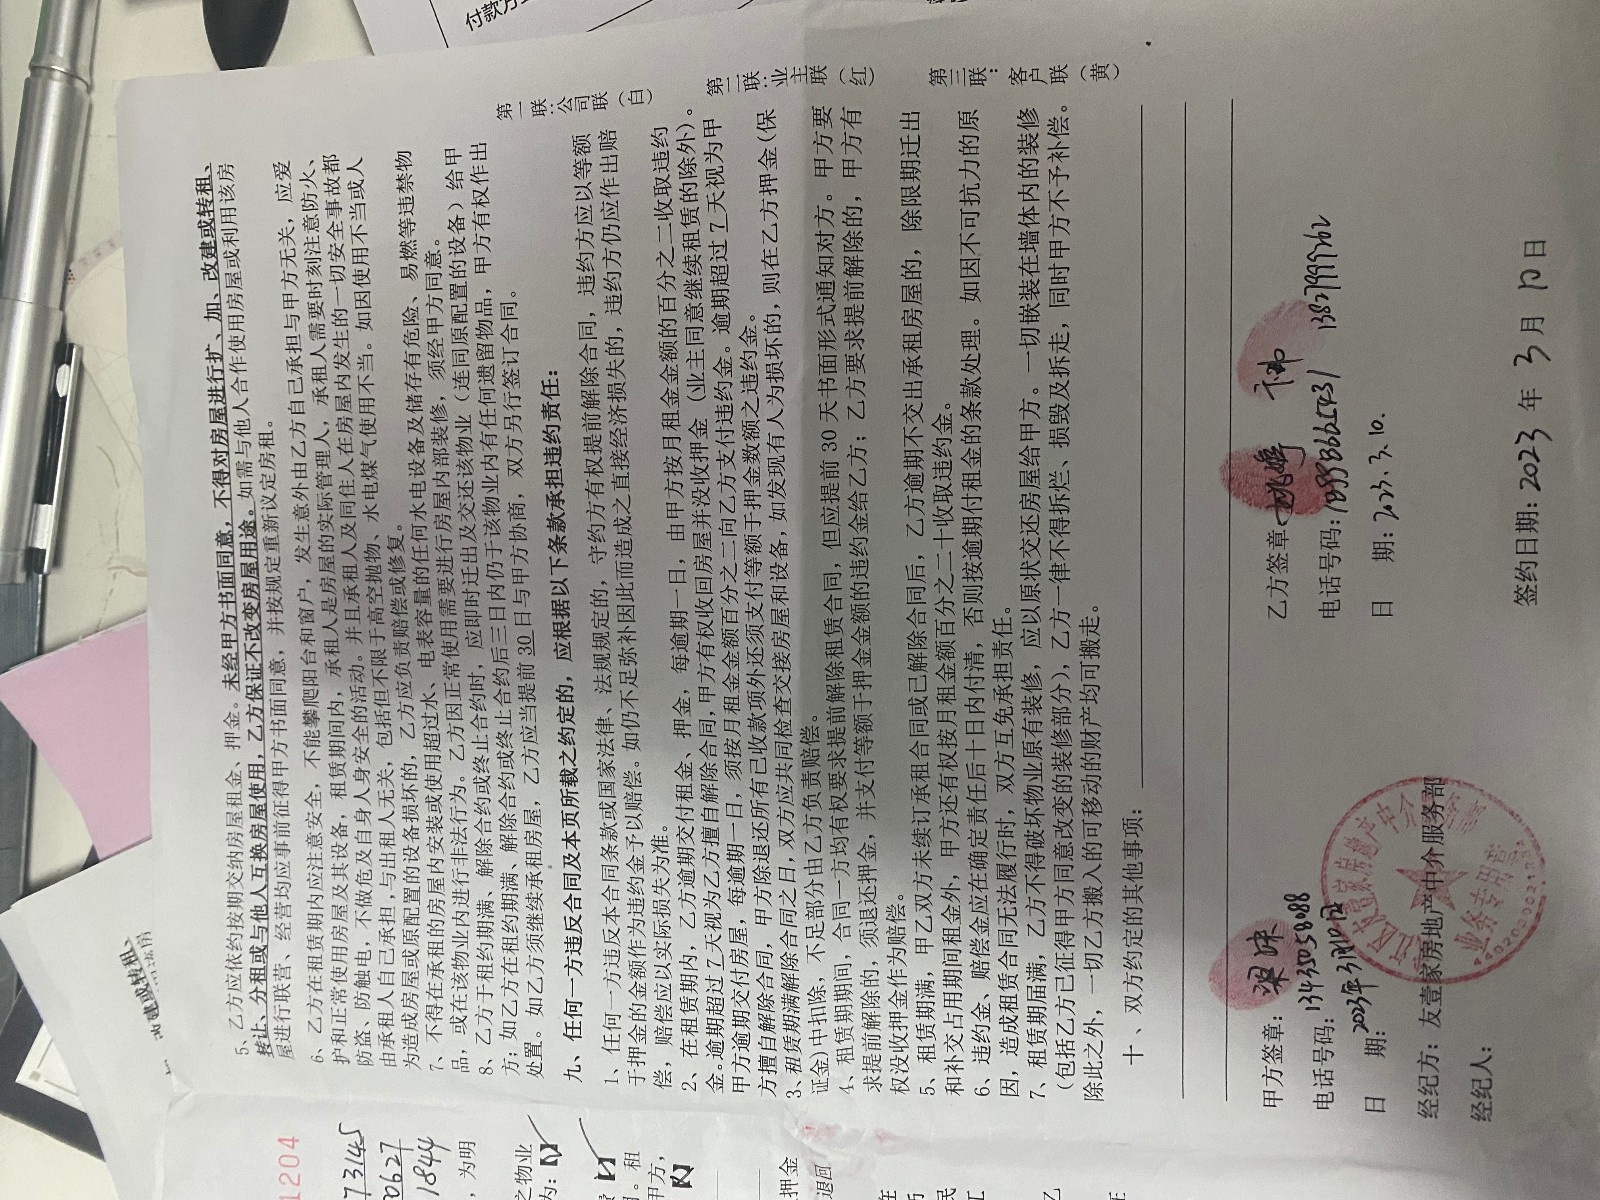 5、乙方应依约按期交纳房屋租金、押金。未经甲方书面同意，不得对房屋进行扩、加、改建或转租、
转让、分租或与他人互换房屋使用，乙方保证不改变房屋用途。如需与他人合作使用房屋或利用该房
屋进行联营、经营均应事前征得甲方书面同意，并按规定重新议定房租。
6、乙方在租赁期内应注意安全，不能攀爬阳台和窗户，发生意外由乙方自己承担与甲方无关，应爱
护和正常使用房屋及其设备，租赁期间内，承租人是房屋的实际管理人，承租人需要时刻注意防火、
防盗、防触电，不做危及自身人身安全的活动。并且承租人及同住人在房屋内发生的一切安全事故都
由承租人自己承担，与出租人无关，包括但不限于高空抛物、水电煤气使用不当。如因使用不当或人
为造成房屋或原配置的设备损坏的，乙方应负责赔偿或修复。
7、不得在承租的房屋内安装或使用超过水、电表容量的任何水电设备及储存有危险、易燃等违禁物
品，或在该物业内进行非法行为。乙方因正常使用需要进行房屋内部装修，须经甲方同意。
8、乙方于租约期满、解除合约或终止合约时，应即时迁出及交还该物业（连同原配置的设备）给甲
方；如乙方在租约期满、解除合约或终止合约后三日内仍于该物业内有任何遗留物品，甲方有权作出
处置。如乙方须继续承租房屋，乙方应当提前 30 日与甲方协商，双方另行签订合同。
九、任何一方违反合同及本页所载之约定的，应根据以下条款承担违约责任：
1、任何一方违反本合同条款或国家法律、法规规定的，守约方有权提前解除合同，违约方应以等额
于押金的金额作为违约金予以赔偿。如仍不足弥补因此而造成之直接经济损失的，违约方仍应作出赔
偿，赔偿应以实际损失为准。
2、在租赁期内，乙方逾期交付租金、押金，每逾期一日，由甲方按月租金金额的百分之二收取违约
金。逾期超过 7 天视为乙方擅自解除合同，甲方有权收回房屋并没收押金（业主同意继续租赁的除外）。
甲方逾期交付房屋，每逾期一日，须按月租金金额百分之二向乙方支付违约金。逾期超过 7 天视为甲
方擅自解除合同，甲方除退还所有已收款项外还须支付等额于押金数额之违约金。
3、租赁期满解除合同之日，双方应共同检查交接房屋和设备，如发现有人为损坏的，则在乙方押金(保
证金)中扣除，不足部分由乙方负责赔偿。
4、租赁期期间，合同一方均有权要求提前解除租赁合同，但应提前 30 天书面形式通知对方。甲方要
求提前解除的，须退还押金，并支付等额于押金金额的违约金给乙方；乙方要求提前解除的，甲方有
权没收押金作为赔偿。
5、租赁期满，甲乙双方未续订承租合同或已解除合同后，乙方逾期不交出承租房屋的，除限期迁出
和补交占用期间租金外，甲方还有权按月租金额百分之二十收取违约金。
6、违约金、赔偿金应在确定责任后十日内付清，否则按逾期付租金的条款处理。如因不可抗力的原
因，造成租赁合同无法履行时，双方互免承担责任。
7、租赁期届满，乙方不得破坏物业原有装修，应以原状交还房屋给甲方。一切嵌装在墙体内的装修
（包括乙方已征得甲方同意改变的装修部分），乙方一律不得拆烂、损毁及拆走，同时甲方不予补偿。
除此之外，一切乙方搬入的可移动的财产均可搬走。
十、双方约定的其他事项：
甲方签章：
电话号码：13435058088
日 期：2023年3月10日
乙方签章：
电话号码：
日 期：2023.3.10.
经纪方：友壹家房地产中介服务部
经纪人：
签约日期：2023 年 3 月 10 日
第一联：公司联（白）
第二联：业主联（红）
第三联：客户联（黄）
业务专用章
1204
73145
20627
1844
，为明
之物业
押金
退回
付款方